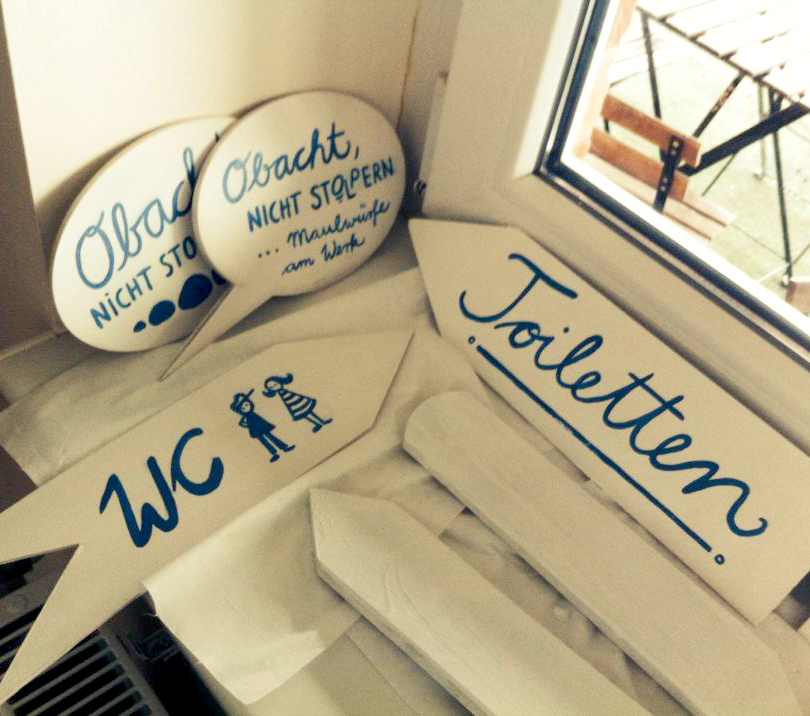 Obach
NICHT STO
Obacht,
NICHT STOLPERN
... Maulwürfe
am Werk
Toiletten
WC